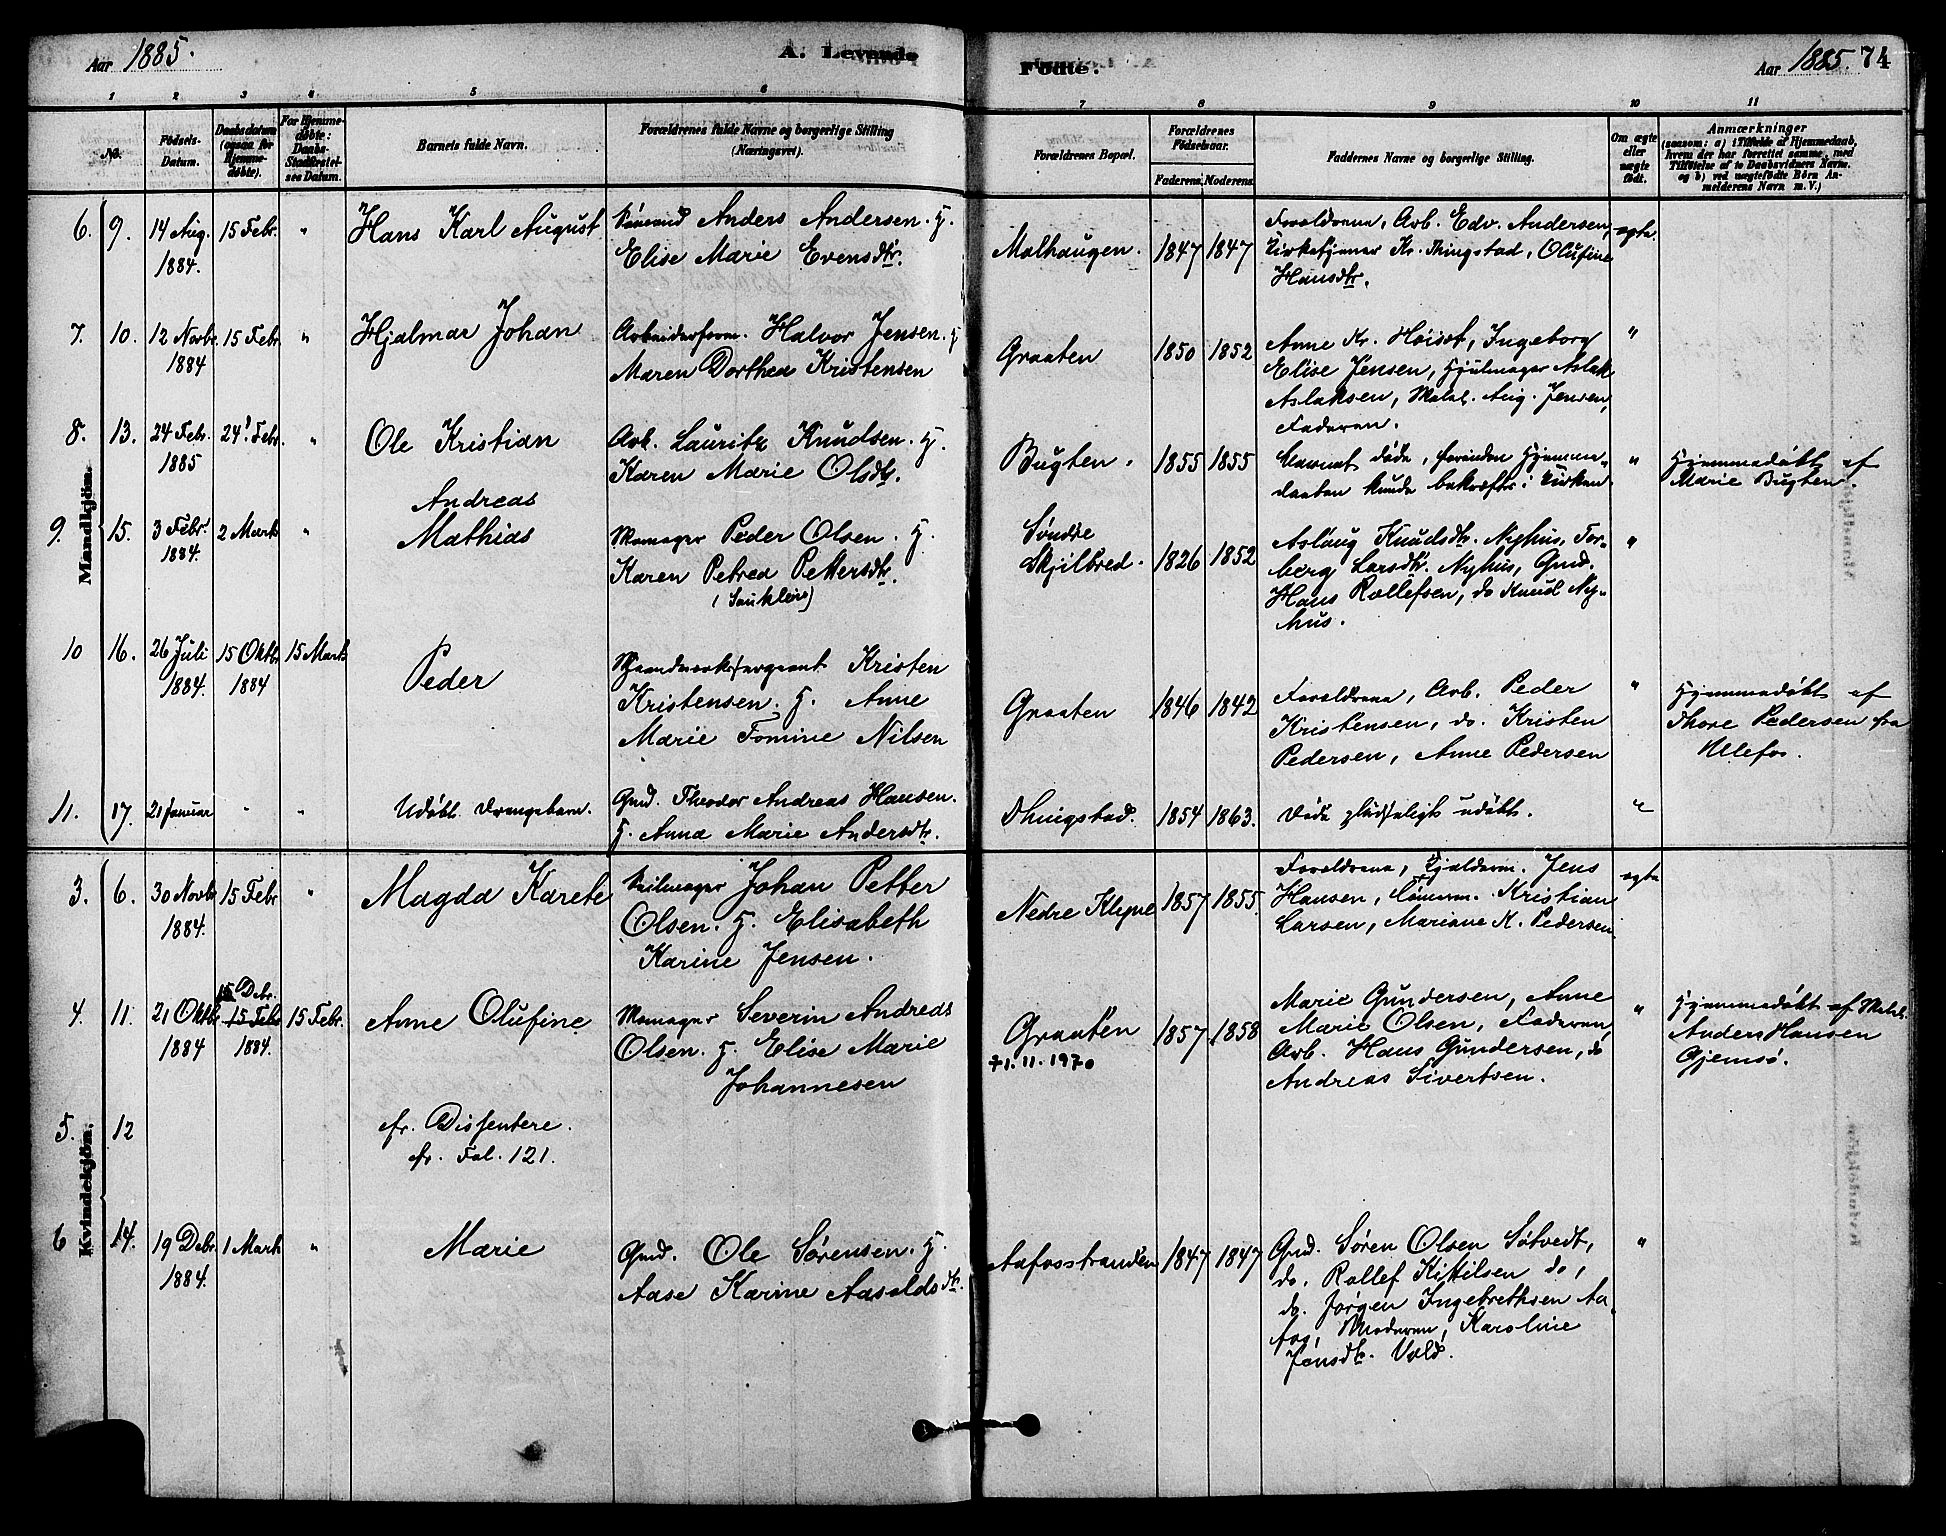 Aar 1885.
A. Levende
Fødte.
Aar 1885. 74
1 2 3 4 5 6 7 8 9 10 11
No.
Fødsels-Datum.
Daabsdatum (ogsaa for Hjemmedøbte).
For Hjemmedøbte: Daabs-Stadfæstelses Datum.
Barnets fulde Navn.
Forældrenes fulde Navne og borgerlige Stilling (Næringsvei).
Forældrenes Bopæl.
Forældrenes Fødselsaar.
Faderens. Moderens.
Faddernes Navne og borgerlige Stilling.
Om ægte eller uægte født.
Anmærkninger
(saasom: a) i Tilfælde af Hjemmedaab,
hvem der har forrettet samme, med
Tilføielse af to Daabsvidners Navne,
og b) ved uægtefødte Børn Anmelderens Navn m. V.)
Mandkjøn.
6. 9. 14 Aug. 1884. 15 Febr. "
Hans Karl August
Anders Andersen. H.
Elise Marie Evensdtr.
Malhaugen. 1847 1847
Forældrene, Arb. Edv. Andersen,
Kirketjener Kr. Thingstad, Olufine
Hansdtr.
ægte.
7. 10. 12 Novbr. 1884 15 Febr. "
Hjalmar Johan
Arbeiderform. Halvor Jensen. H
Maren Dorthea Kristensen
Graaten 1850 1852
Anne Kr. Høiset, Ingeborg
Elise Jensen, Hjulmager Aslak
Aslaksen, Matr. Aug. Jensen,
Faderen.
"
8. 13. 24 Febr. 1885 24 Febr. "
Ole Kristian
Arb. Lauritz Knudsen. H.
Karen Marie Olsdtr.
Bugten. 1855 1855
Barnet døde, forinden Hjemme-
daaben kunde bekræftes i Kirken
"
Hjemmedøbt af
Marie Bugten.
9. 15. 3 Febr. 1884. 2 Marts "
Andreas
Mathias
Skomager Peder Olsen. H.
Karen Petrea Pettersdtr.
(Saukleiv)
Søndre
Skjilbred. 1826 1852
Aslaug Knudsdtr. Nyhus, Tor-
berg Larsdtr. Nyhus, Gmd.
Hans Rollefsen, do Knud Ny-
hus.
"
10 16. 26 Juli 1884. 15 Oktb. 1884 15 Marts
Peder
Haandværkssergeant Kristen
Kristensen. H. Anne
Marie Tomine Nilsen
Graaten 1846 1842
Forældrene, Arb. Peder
Kristensen, do. Kristen
Pedersen, Anne Pedersen
"
Hjemmedøbt af
Thore Pedersen fra
Ulefos.
11. 17. 21 Januar " "
Udøbt Drengebarn.
Gmd. Theodor Andreas Hansen.
H. Anna Marie Andersdtr.
Thingstad. 1854 1863.
Døde pludseligt udøbt.
"
Kvindekjøn.
3. 6. 30 Novbr 1884. 15 Febr "
Magda Karete
Seilmager Johan Petter
Olsen. H. Elisabeth
Karine Jensen.
Nedre Klyve 1857 1855.
Forældrene, Jens
Hansen, Tømrem. Kristian
Larsen, Mariane K. Pedersen.
ægte
4. 11. 21 Oktb. 1884 15 Debr. 15 Febr 1884. 15 Febr.
Anne Olufine
Skomager Severin Andreas
Olsen. H. Elise Marie
Johannesen
Graaten
† 1.11.1970
1857 1858
Marie Gundersen, Anne
Marie Olsen, Faderen,
Arb. Hans Gundersen, do
Andreas Sivertsen.
"
Hjemmedøbt af Matr.
Anders Hansen
Gjemsø.
5. 12
cfr. Dissentere.
cfr. Fol. 121.
6 14. 19 Debr. 1884. 1 Marts "
Marie
Gmd. Ole Sørensen. H.
Aase Karine Aasoldsdtr.
Aafosstranden 1847 1847
Gmd. Søren Olsen Søtvedt,
do. Rollef Kittilsen do,
do. Jørgen Ingebrethsen Aa-
fos, Moderen, Karoline
Jensdtr. Vold.
"